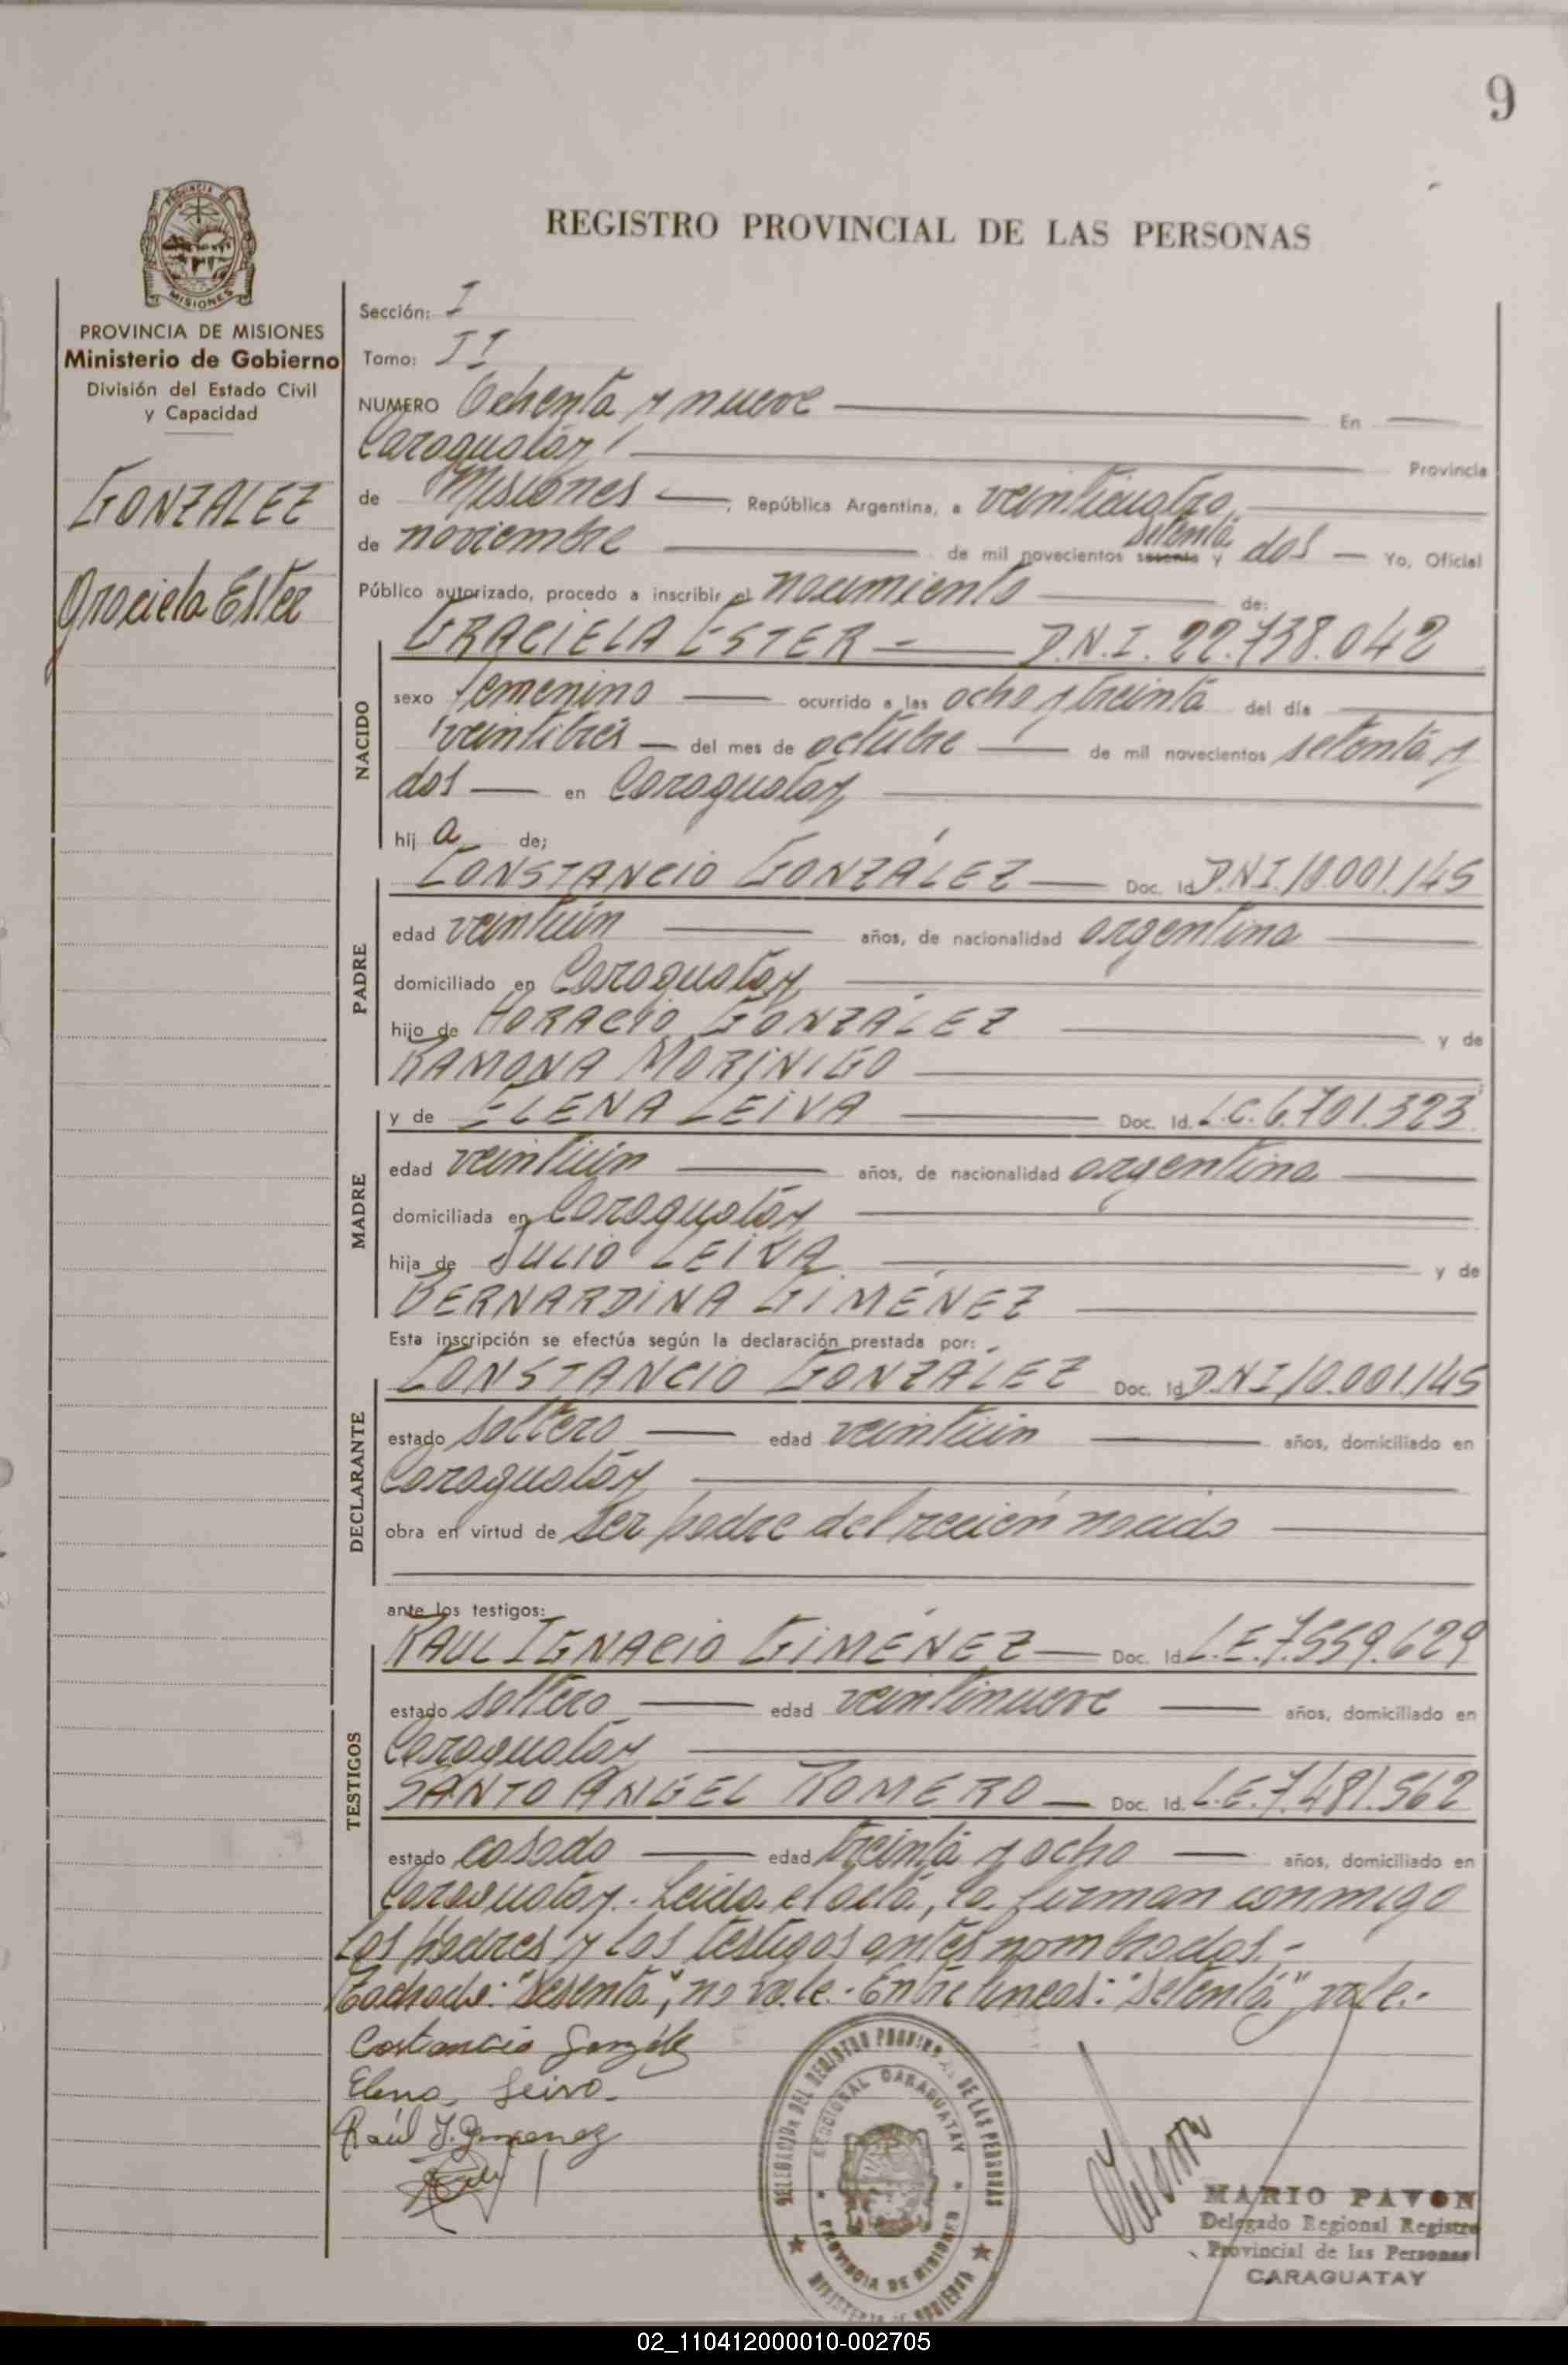 9
REGISTRO PROVINCIAL DE LAS PERSONAS
MISIONES
PROVINCIA DE MISIONES
Ministerio de Gobierno
División del Estado Civil
y Capacidad
GONZALEZ
Graciela Ester
Sección: I
Tomo: II
NUMERO Ochenta y nueve En
Caraguatay
Provincia
de Misiones, República Argentina, a veinticuatro
de noviembre de mil novecientos sesenta setenta y dos Yo, Oficial
Público autorizado, procedo a inscribir el nacimiento de:
NACIDO
GRACIELA ESTER D.N.I. 22.738.042
sexo femenino ocurrido a las ocho y treinta del día
veintitrés del mes de octubre de mil novecientos setenta y
dos en Caraguatay
hij a de;
PADRE
CONSTANCIO GONZÁLEZ Doc. Id. D.N.I 10.001.145
edad veintiún años, de nacionalidad argentina
domiciliado en Caraguatay
hijo de HORACIO GONZÁLEZ y de
RAMONA MORINIGO
MADRE
y de ELENA LEIVA Doc. Id. L.C. 6.701.323
edad veintiún años, de nacionalidad argentina
domiciliada en Caraguatay
hija de JULIO LEIVA y de
BERNARDINA GIMÉNEZ
Esta inscripción se efectúa según la declaración prestada por:
DECLARANTE
CONSTANCIO GONZÁLEZ Doc. Id. D.N.I 10.001.145
estado soltero edad veintiún años, domiciliado en
Caraguatay
obra en virtud de ser padre del recién nacido
ante los testigos:
TESTIGOS
RAUL IGNACIO GIMÉNEZ Doc. Id. L.E. 7.559.629
estado soltero edad veintinueve años, domiciliado en
Caraguatay
SANTO ANGEL ROMERO Doc. Id. L.E. 7.481.562
estado casado edad treinta y ocho años, domiciliado en
Caraguatay. Leída el acta, la firman conmigo
los padres y los testigos antes nombrados.-
Tachado: "sesenta", no vale.- Entre lineas: "setenta" vale.-
Costancio Gonzálz
Elena Leiva.
Raúl I. Gimenez
DELEGACION DEL REGISTRO PROVINCIAL DE LAS PERSONAS
SECCIONAL CARAGUATAY
PROVINCIA DE MISIONES
MINISTERIO DE GOBIERNO
MARIO PAVON
Delegado Regional Registro
Provincial de las Personas
CARAGUATAY
02_110412000010-002705